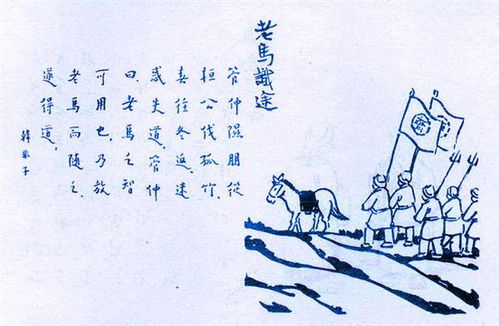 老馬識途
管仲隰朋從
桓公伐孤竹，
春往冬返，迷
惑失道．管仲
曰：老馬之智
可用也，乃放
老馬而隨之，
遂得道．
韓非子